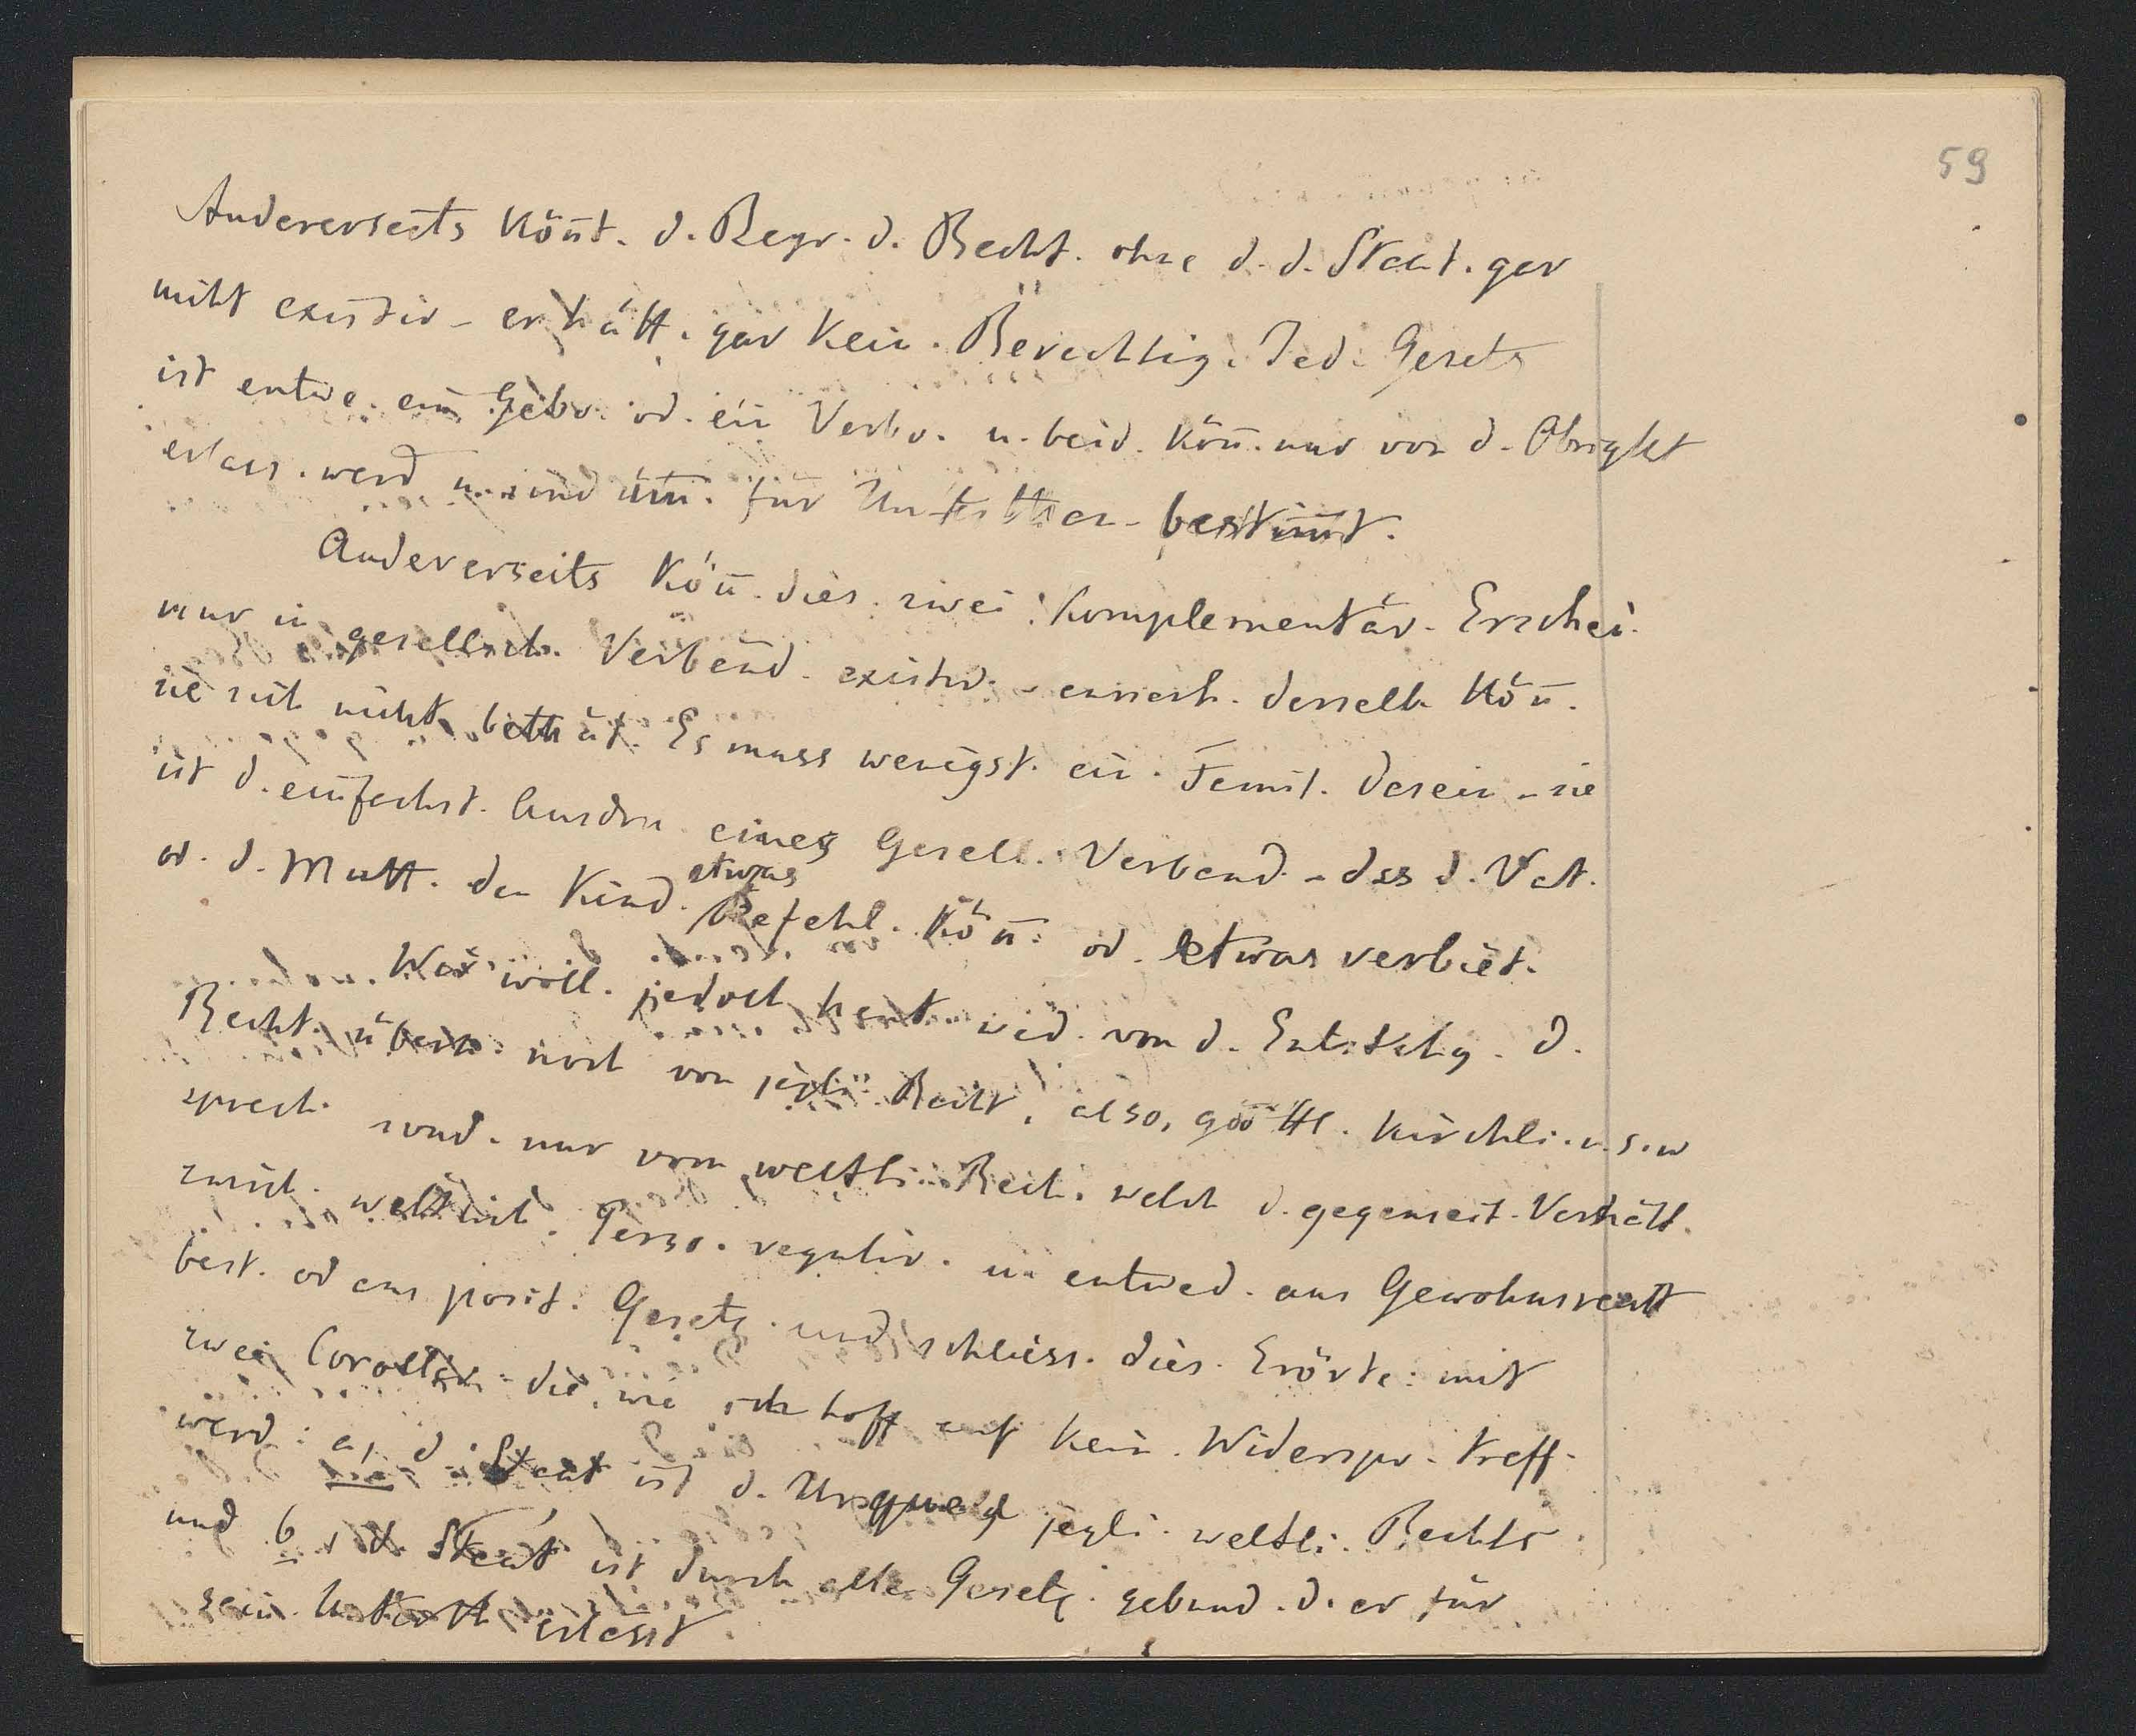 59
Andererseits könt. d. Begr. d. Recht. ohne d. d. Staat. gar
nicht existir - er hätt. gar kein. Berechtig. Jed. Gesetz
ist entwe. ein Gebo. od. ein Verbo. u. beid. kön̄. nur von d. Obrigkt
erlass. werd u. sind im̄. für Unterthan - bestim̄t.
Andererseits kön̄. dies. zwei Komplementär. Erschei.
nur in gesellsch. Verbänd. existir. - ausserh. desselb. kön̄.
sie sich nicht bethät. Es muss wenigst. ein. Famil. dasein - sie
ist d. einfachst. Ausdru. eines Gesell. Verband. - dass d. Vat.
od. d. Mutt. den Kind. etwas Befehl. kön̄. od. etwas verbiet.
Wir woll. jedoch heut. wed. von d. Entstehg. d.
Recht. überh. noch von jegli. Recht, also, göttl. kirchli. u. s. w
sprech. sond. nur vom weltli. Rech. welch d. gegenseit. Verhält.
zwisch. weltlich. Perso. regulir. u. entwed. aus Gewohnsrecht
best. od aus posit. Gesetz. und schliess. dies. Erörte. mit
zwei Corollar. die, wie ich hoff auf kein. Widerspr. treff.
werd: a, d. Staat ist d. Urquell jegli. weltli. Rechts
und b, d. Staat ist durch alle Gesetz. gebund. d. er für
sein. Unterth. erlässt